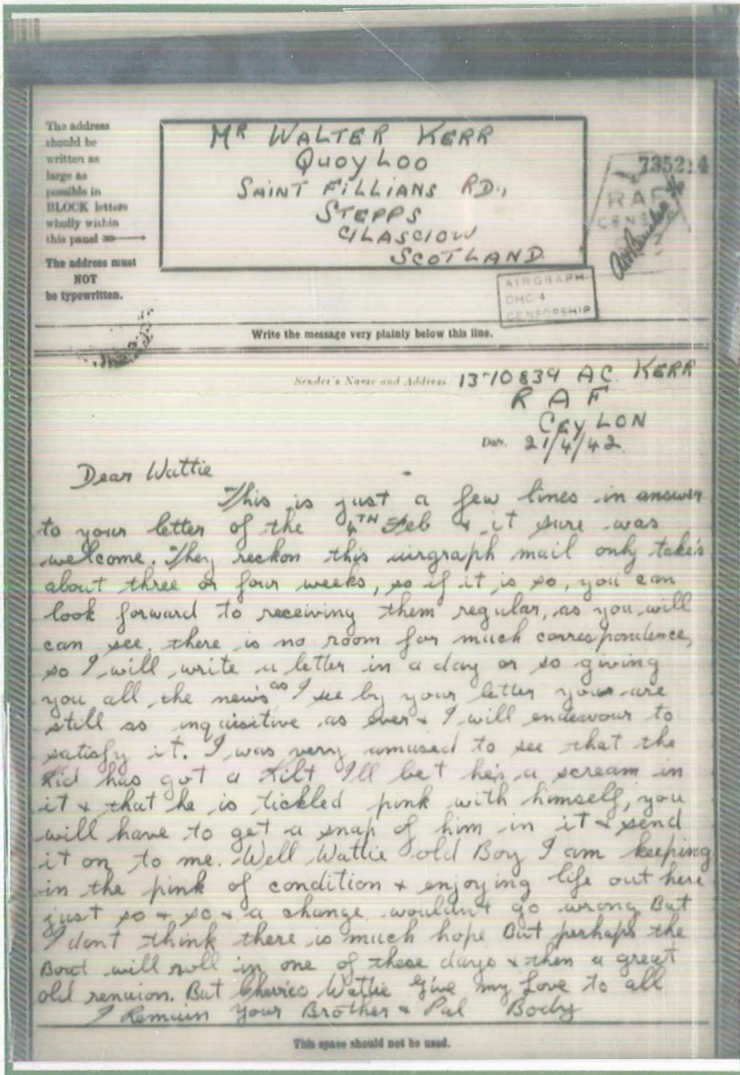 The address
should be
written as
large as
possible in
BLOCK letters
wholly within
this panel
The address must
NOT
be typewritten.
MR WALTER KERR
QUOYLOO
SAINT FILLIANS RD.,
STEPPS
GLASGOW
SCOTLAND.
735214
RAF
CENSOR
AIRGRAPH
OHC 4
CENSORSHIP
Write the message very plainly below this line.
Sender's Name and Address 1370839 AC. KERR
RAF
CEYLON
Date. 21/4/42.
Dear Wattie
This is just a few lines in answer
to your letter of the 4TH Feb & it sure was
welcome. They reckon this airgraph mail only take's
about three or four weeks, so if it is so, you can
look forward to receiving them regular, as you will
can see, there is no room for much correspondence,
so I will write a letter in a day or so giving
you all the news as I see by your letter you are
still as inquisitive as ever & I will endevour to
satisfy it. I was very amused to see that the
Kid has got a Kilt I'll bet he's a scream in
it & that he is tickled pink with himself, you
will have to get a snap of him in it & send
it on to me. Well Wattie old Boy I am keeping
in the pink of condition & enjoying life out here
just so & so & a change wouldn't go wrong But
I don't think there is much hope But perhaps the
Boat will roll in one of these days & then a great
old renuion. But Cheerico Wattie Give my Love to all
I Remain Your Brother & Pal Body
This space should not be used.